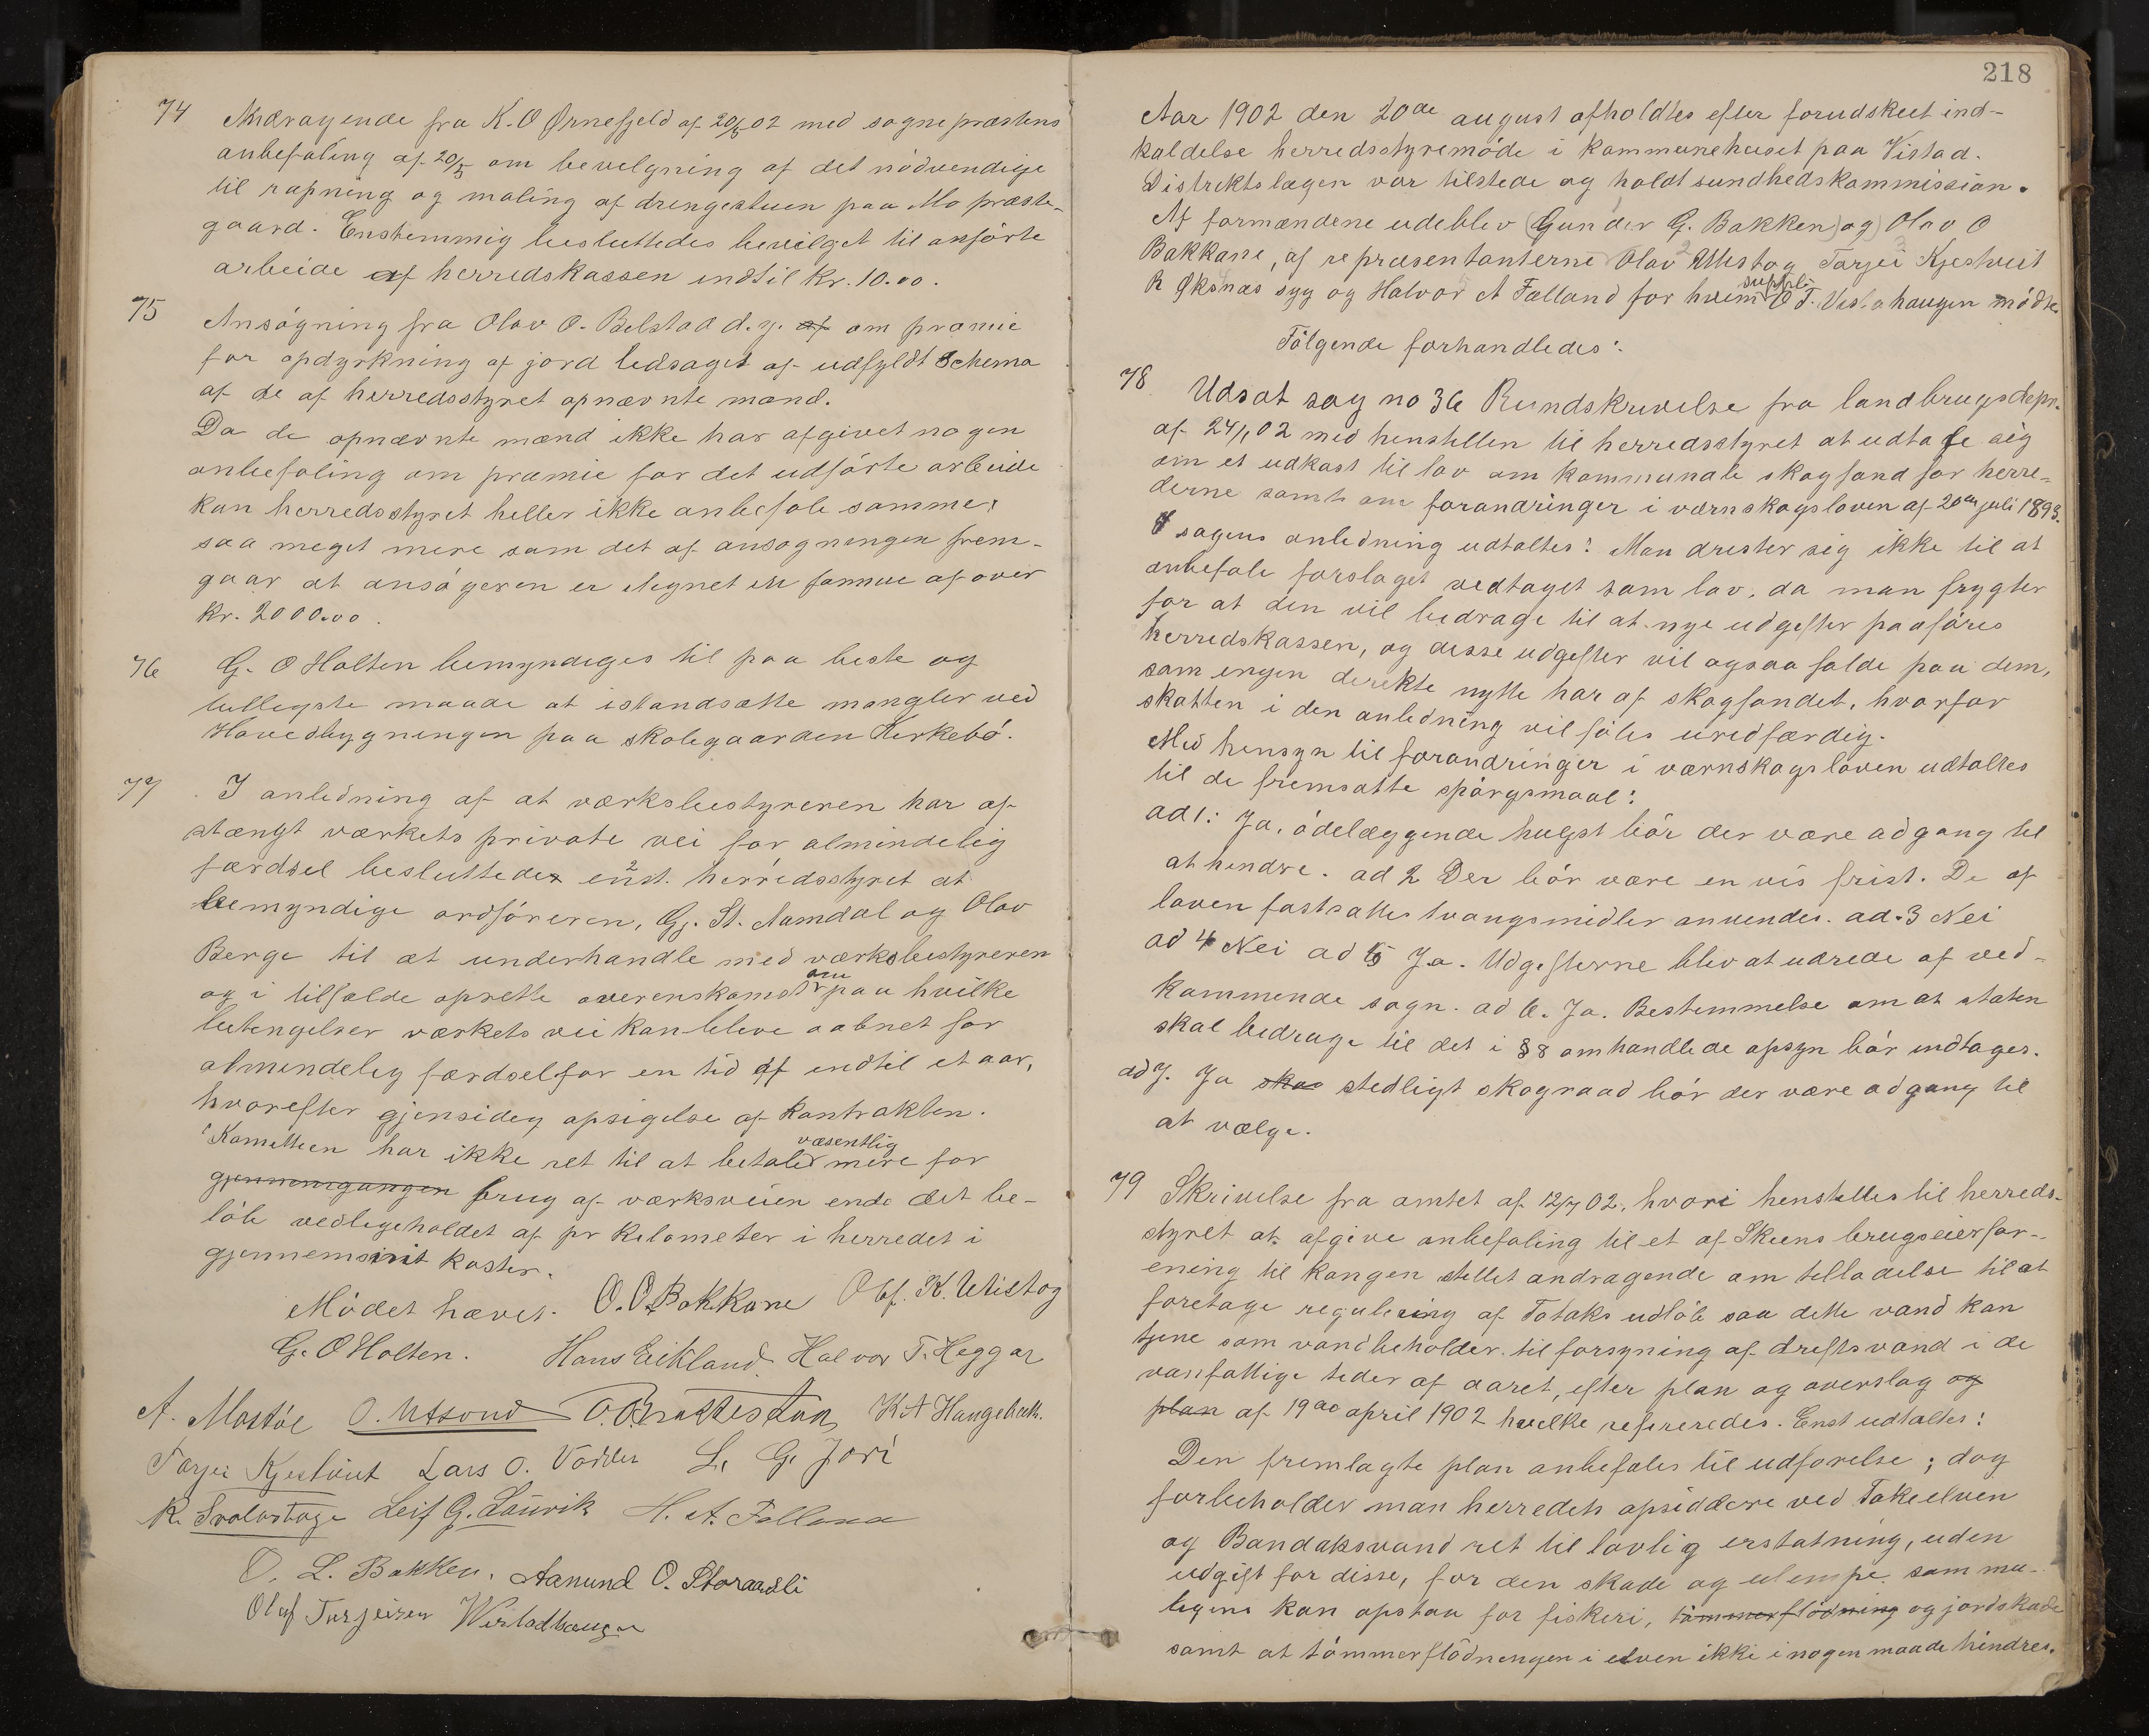 74 Andragende fra K. O Ørnefjeld af 20/5 02 med sognepræstens
anbefaling af 20/5 om bevelgning af det nödvendige
til rapning og maling af drengestuen paa Mo præste-
gaard. Enstemmig besluttedes bevilget til anförte
arbeide af herredskassen indtil kr. 10.00.
75 Ansögning fra Olav O. Belstad d.y. af om præmie
for opdyrkning af jord ledsaget af udfyldt Schema
af de af herredsstyret opnævnte mænd.
Da de opnævnte mænd ikke har afgivet nogen
anbefaling om præmie for det udförte arbeide
kan herredsstyret heller ikke anbefale samme,
saa meget mere som det af ansøgningen frem-
gaar at ansögeren er ilignet en formue af over
kr. 2000.00.
76 G. O Holten bemyndiges til paa beste og
billegste maade at istandsætte mangler ved
Hovedbygningen paa skolegaarden Kirkebö.
77 I anledning af at værksbestyreren har af
stængt værkets private vei for almindelig
færdsel besluttedes enst. herredsstyret at
bemyndige ordföreren, Gj. St. Aamdal og Olav
Berge til at underhandle med værksbestyreren
og i tilfælde oprette overenskomst om paa hvilke
betengelser værkets vei kan bleve aabnet for
almendelig færdsel for en tid af indtil et aar,
hvorefter gjensideg opsigelse af kontrakten.
Kometteen har ikke ret til at betale væsentlig mere for
gjennemgangen brug af værksveien ende det be-
löb vedligeholdet af pr kelometer i herredet i
gjennemsnit koster.
Mödet hævet. O. O. Bakkane Olf. K. Utistog
G. O Holten. Hans Eikland Halvor T. Heggar
A. Mostöe O. Midsund O. Brattestaa K A Haugebak.
Tarjei Kjestveit Lars O. Vadder L. G. Jori
K. Svalastoge Leif G. Laurik H. A. Falland
O. L. Bakken. Aanund O. Storaadli
Olaf Torjeisen Vistadhaugen
218
Aar 1902 den 20de august afholdtes efter forudskeet ind-
kaldelse herredsstyremöde i kommunehuset paa Vistad.
Distriktslægen var tilstede og holdt sundhedskommission.
Af formændene udeblev (Gunder G. Bakken) og) Olav O
Bakkane, af repræsentanterne Olav Utistog Tarjei Kjestveit
R Øksnas syg og Halvor A Falland for hvem suppli O T. Vistahaugen mödte.
Fölgende forhandledes:
78 Udsat sag no 36 Rundskrivelse fra landbrugsdepr.
af 24/1 02 med henstillen til herredsstyret at udtale sig
om et udkast til lov om kommunale skogfond for herre-
derne samt om forandringer i værnskogsloven af 20de juli 1893.
I sagens anledning udtaltes: Man drister sig ikke til at
anbefale forslaget vedtaget som lov, da man frygter
for at den vil bedrage til at nye udgefter paaföres
herredskassen, og disse udgefter vil ogsaa falde paa dem,
som ingen derekte nytte har af skogfondet, hvorfor
skatten i den anledning vil föles uredfærdig.
Med hensyn til forandringer i værnskogsloven udtaltes
til de fremsatte spörgsmaal:
ad 1: Ja, ödelæggende hugst bör der være adgang til
at hendre. ad 2 Der bör være en vis frist. De af
loven fastsattes tvangsmidler anvendes. ad. 3 Nei
ad 4 Nei ad 5 Ja. Udgefterne blev at udrede af ved-
kommende sogn. ad 6. Ja. Bestemmelse om at staten
skal bedrage til det i § 8 omhandlede opsyn bör indtages.
ad 7. Ja skao stedligt skograad bör der være adgang til
at vælge.
79 Skrivelse fra amtet af 12/7 02, hvori henstilles til herreds-
styret at afgive anbefaling til et af Skiens brugseierfor-
ening til kongen stellet andragende om telladelse til at
foretage regulering af Totaks udlöb saa dette vand kan
tjene som vandbeholder til forsyning af driftsvand i de
vanfattige teder af aaret, efter plan og overslag og
plan af 19de april 1902 hvelke refereredes. Enst udtaltes:
Den fremlagte plan anbefales til udförelse; dog
forbeholder man herredets opsiddere ved Tokeelven
og Bandaksvand ret til lovlig erstatning, uden
udgift for disse, for den skade og ulempe som mu-
ligens kan opstaa for fiskeri, tömmerflödning og jordskade
samt at tömmerflödningen i elven ikke i nogen maade hindres.